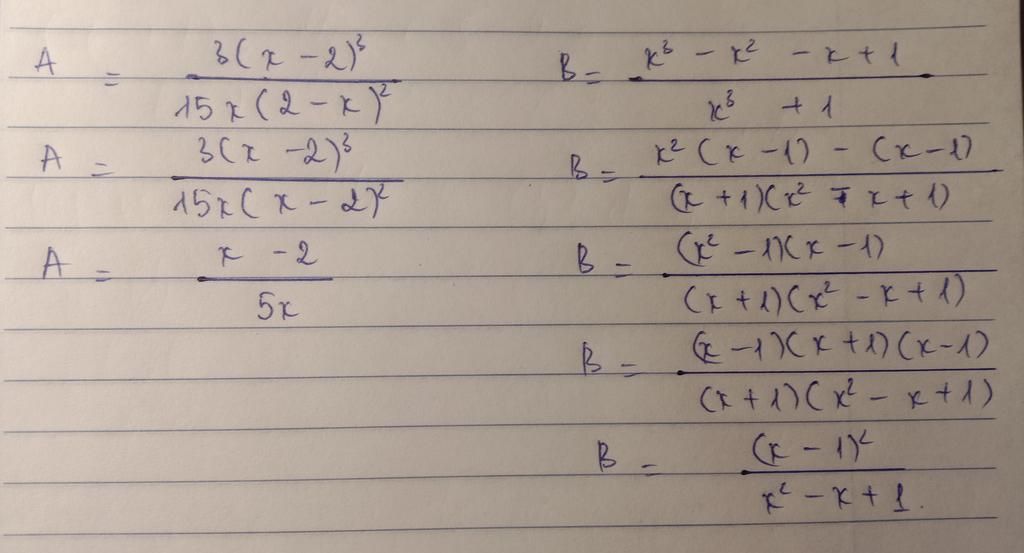 A = 3(x - 2)³ / 15x(2 - x)²
A = 3(x - 2)³ / 15x(x - 2)²
A = x - 2 / 5x
B = x³ - x² - x + 1 / x³ + 1
B = x²(x - 1) - (x - 1) / (x + 1)(x² - x + 1)
B = (x² - 1)(x - 1) / (x + 1)(x² - x + 1)
B = (x - 1)(x + 1)(x - 1) / (x + 1)(x² - x + 1)
B = (x - 1)² / x² - x + 1.